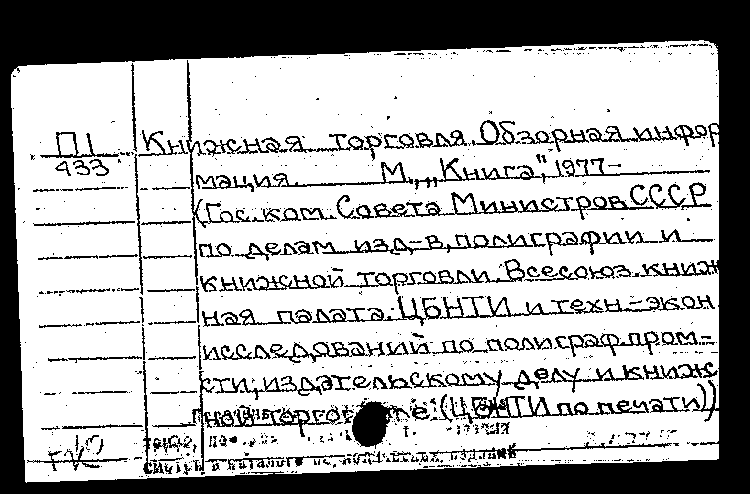 П1 Книжная торговля. Обзорная инфор
433 мация. М., „Книга", 1977-
(Гос. ком. Совета Министров СССР
по делам изд-в, полиграфии и
книжной торговли. Всесоюз. книж
ная палата. ЦБНТИ и техн.-экон
исследований по полиграф. пром-
сти, издательскому делу и книж
ной торговле. (ЦБНТИ по печати))
смотри в каталоге изданий